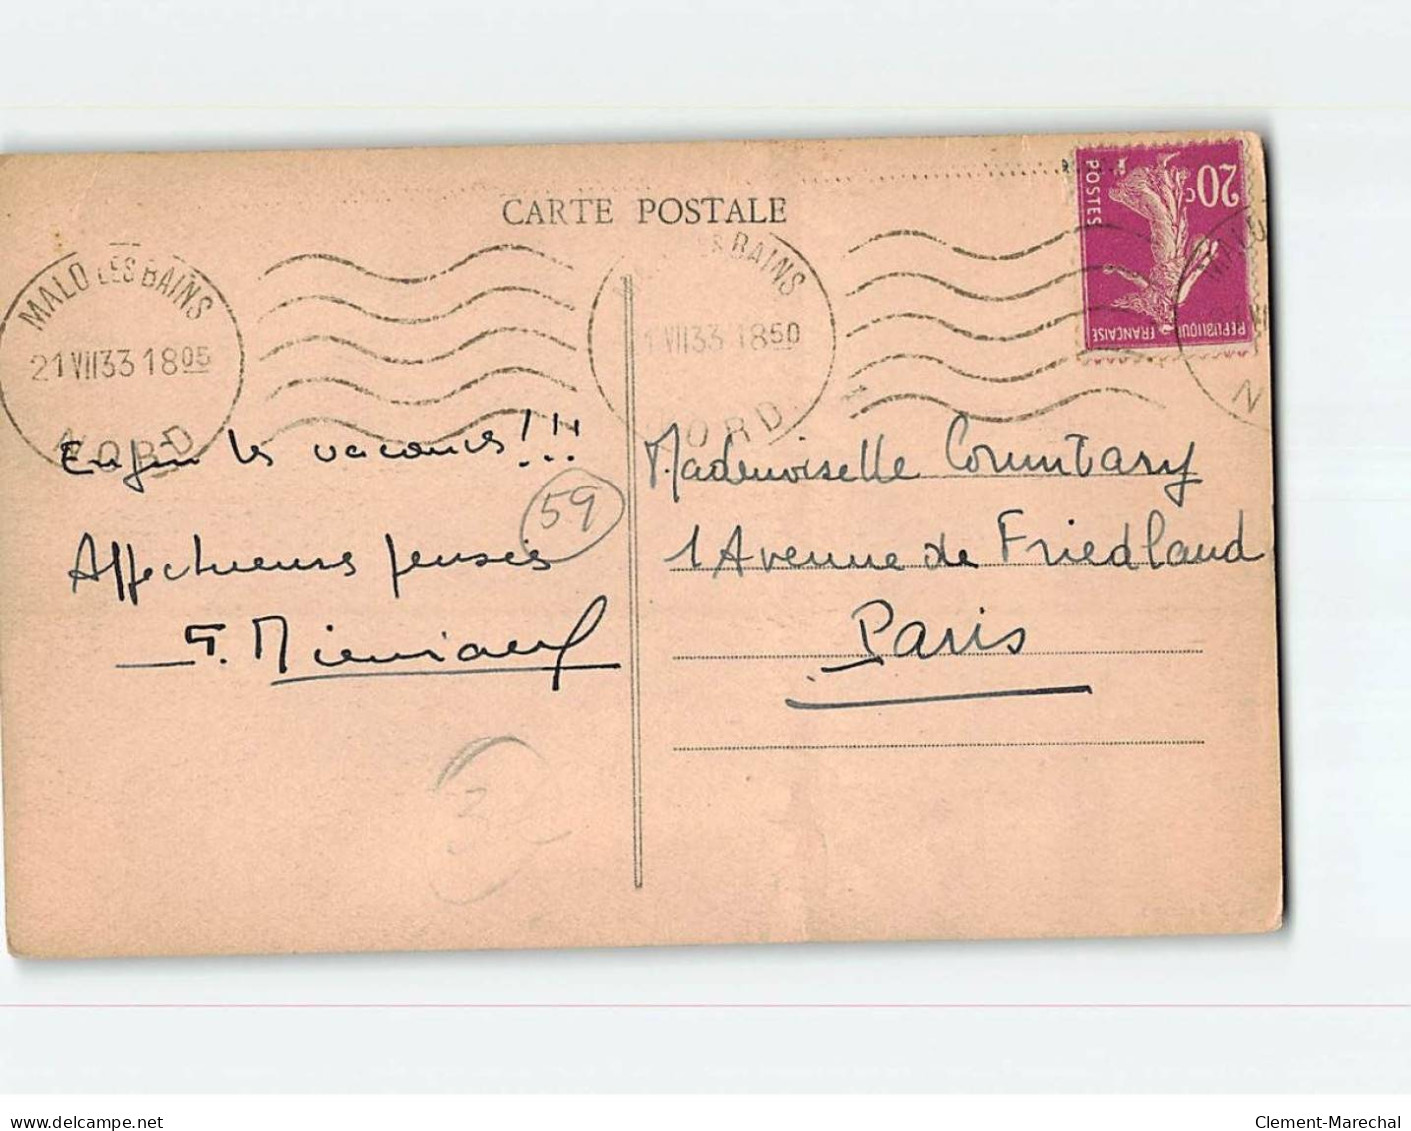 CARTE POSTALE
POSTES
20c
REPUBLIQUE
FRANCAISE
MALO LES BAINS
21 VII 33 1805
NORD
LES BAINS
1 VII 33 1850
NORD
MALO
N
Enfin les vacances!!!
59
Affectueuses pensées
Mademoiselle
1 Avenue de Friedland
Paris
delcampe.net
Clement-Marechal